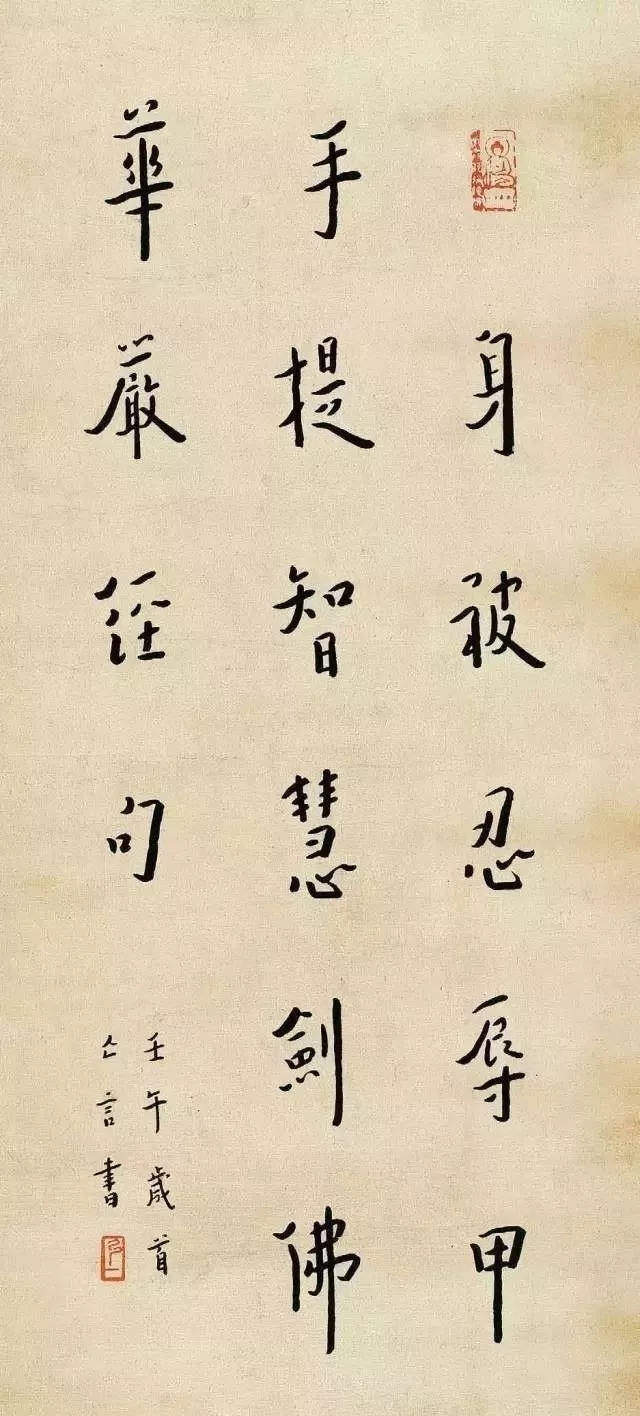 身被忍辱甲
手提智慧劍佛
華嚴經句
壬午歲首
亡言書